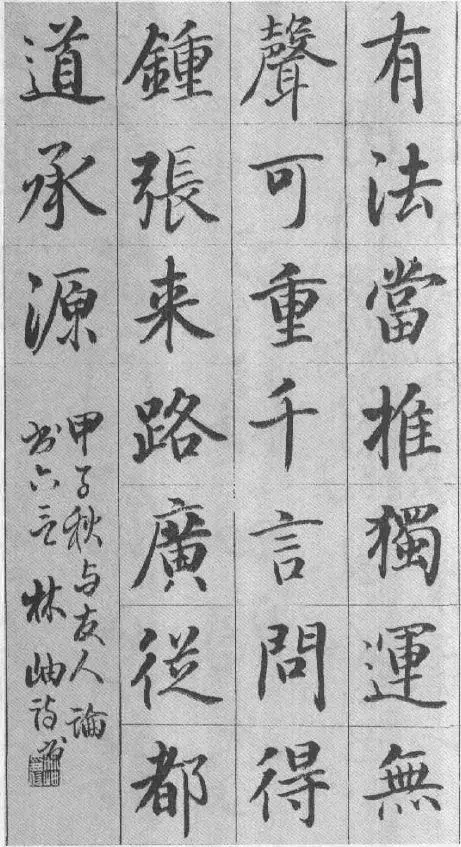 有法當推獨運無
聲可重千言問得
鍾張来路廣從都
道承源
甲子秋与友人論
书六言 林岫詩并